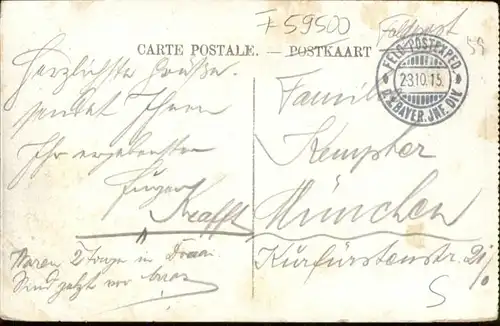 F 59500
Feldpost
59
CARTE POSTALE. — POSTKAART
FELD-POSTEXPED.
23.10.15.
BAYER. INF. DIV.
Herzlichste Grüße
sendet Ihnen
Ihr ergebenster
Krafft
Familie
Kempter
München
Kurfürstenstr. 21/0
Waren 2 Tage in
Sind jetzt vor
S